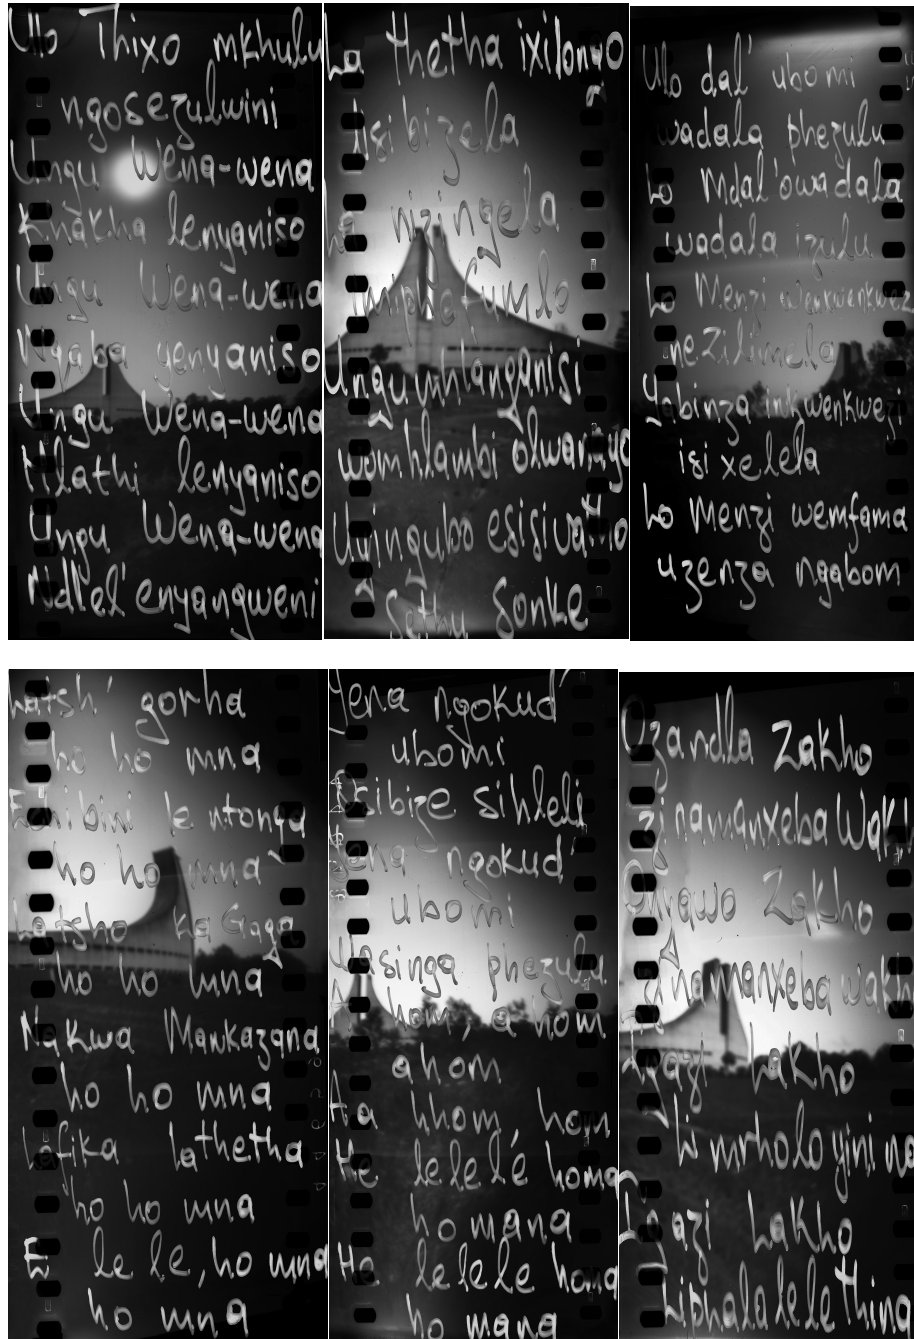 Ulo Thixo mkhulu
ngosezulwini
Ungu Wena-wena
Khakha lenyaniso
Ungu Wena-wena
Nqaba yenyaniso
Ungu Wena-wena
Hlathi lenyaniso
Ungu Wena-wena
Ndlel' enyangweni
La thetha ixilongo
lisibizela
La nizingela
imiphefumlo
Ungumhlanganisi
womhlambi
Uyingubo esisivatho
Sathu Sonke
Ulo dal' ubomi
wadala phezulu
Lo Mdal' owadala
wadala izulu
Lo Menzi wenkwenkwezi
neZilimela
Yabinza inkwenkwezi
isixelela
Lo Menzi wemfama
uzenza ngabom
Latsh' gorha
ho ho mna
Ezihibini le ntonga
ho ho mna
Latsho kaGaga
ho ho mna
Nakwa Mankazana
ho ho mna
Lafika lathetha
ho ho mna
E le le, ho mna
ho mna
Yena ngokud'
ubomi
Usibize sihleli
Yena ngokud'
ubomi
Wasinga phezulu
hom, a hom
ahom
Ha hhom, hom
He lelele homa
ho mana
Ho lelele homa
ho mana
Ozandla Zakho
zinamanxeba Wakh
Onyawo Zakho
zinamanxeba wakh
Igazi Lakho
limrholo yini na
Igazi Lakho
Liphalalele thina